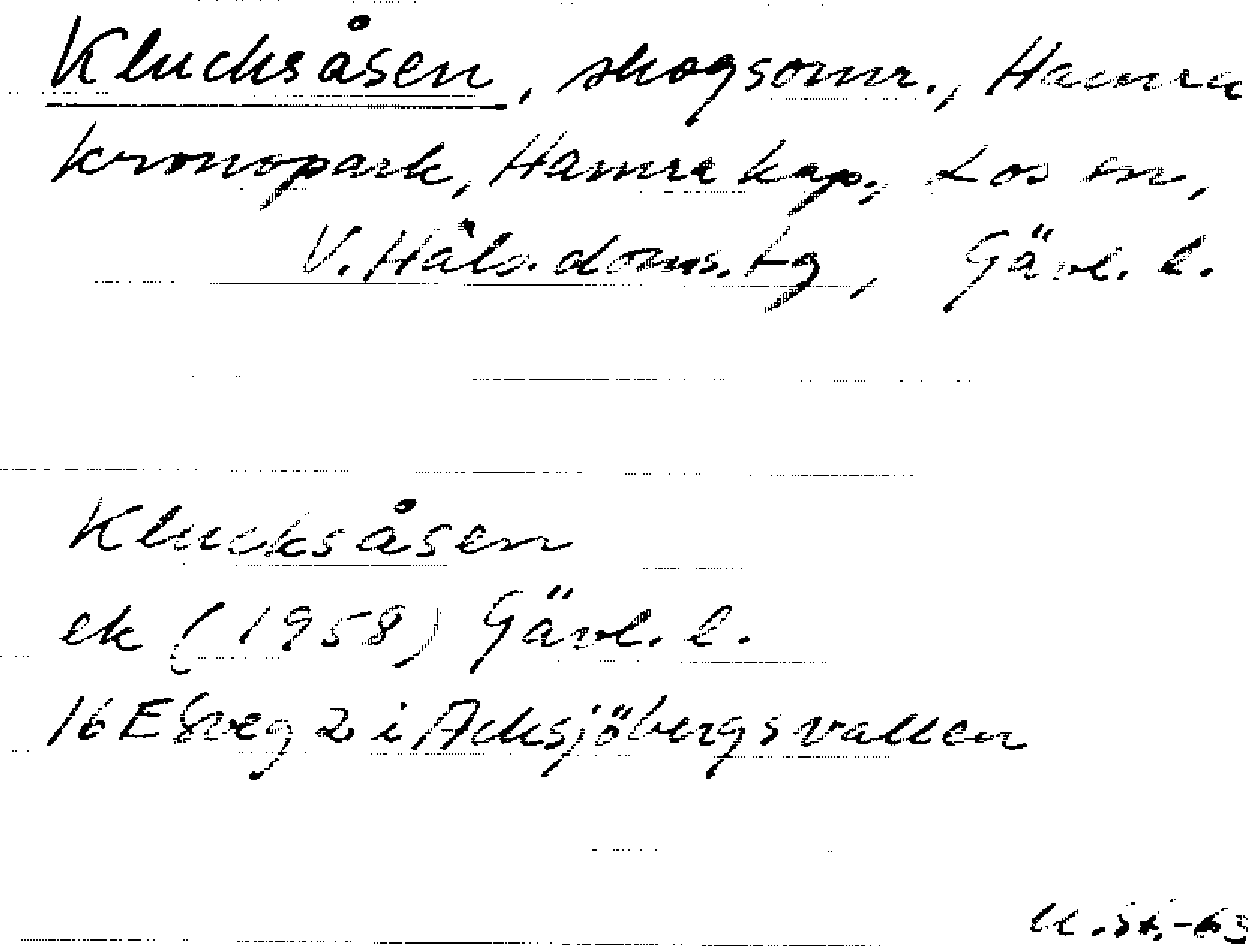 Klucksåsen, skogsomr., Hamra
kronopark, Hamra kap., Los sn,
V. Häls. doms. tg, Gävl. l.
Klucksåsen
ek (1958) Gävl. l.
16 E Sveg 2 i Acksjöbergsvallen